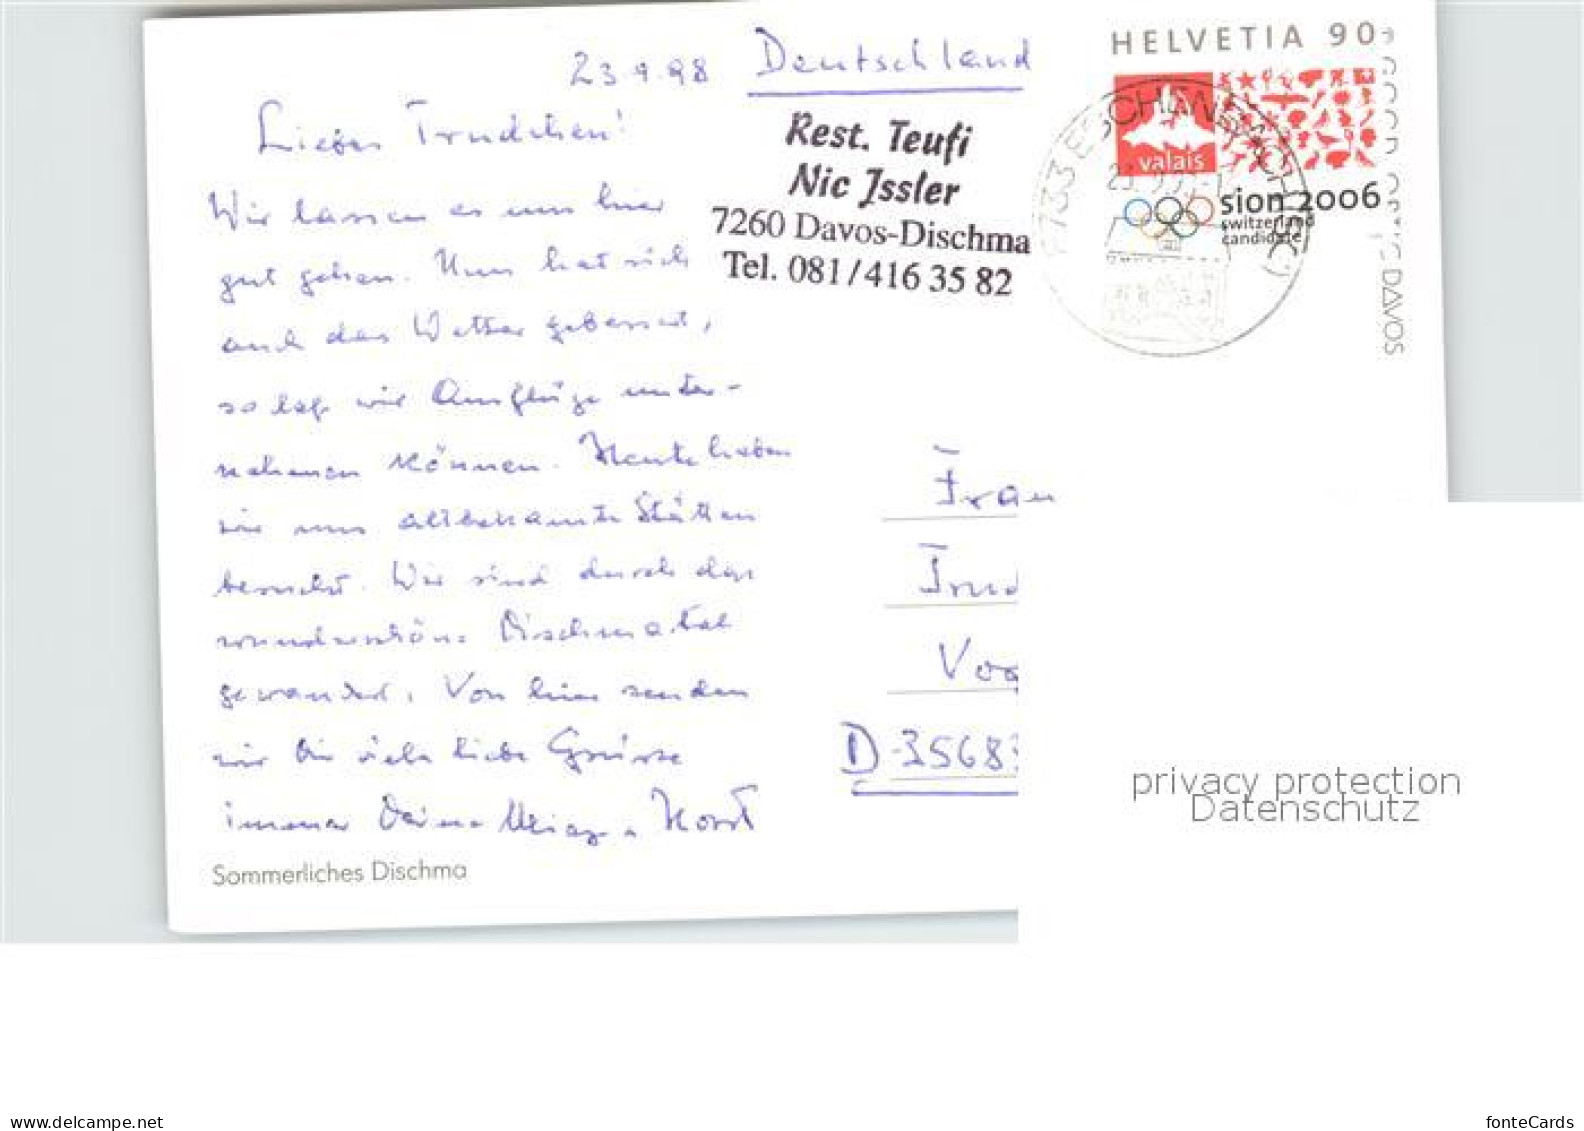 23.9.98 Deutschland
HELVETIA 90
Liebes Trudchen!
Rest. Teufi
Nic Jssler
7260 Davos-Dischma
Tel. 081/416 35 82
valais
sion 2006
switzerland
candidate
DAVOS
Wir lassen es uns hier
gut gehen. Nun hat sich
auch das Wetter gebessert,
so daß wir Ausflüge unter-
nehmen können. Heute haben
wir uns altbekannte Stätten
besucht. Wir sind durch das
wunderschöne Dischmatal
gewandert. Von hier senden
wir Dir viele liebe Grüsse
immer Deine u. Horst
Frau
Trud
Vog
D-35683
Sommerliches Dischma
privacy protection
Datenschutz
www.delcampe.net
fonteCards